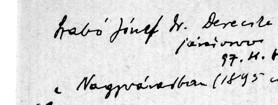 Szabó József Dr. Derecske
járásorvos
97. H. 
a Nagyváradban (1895